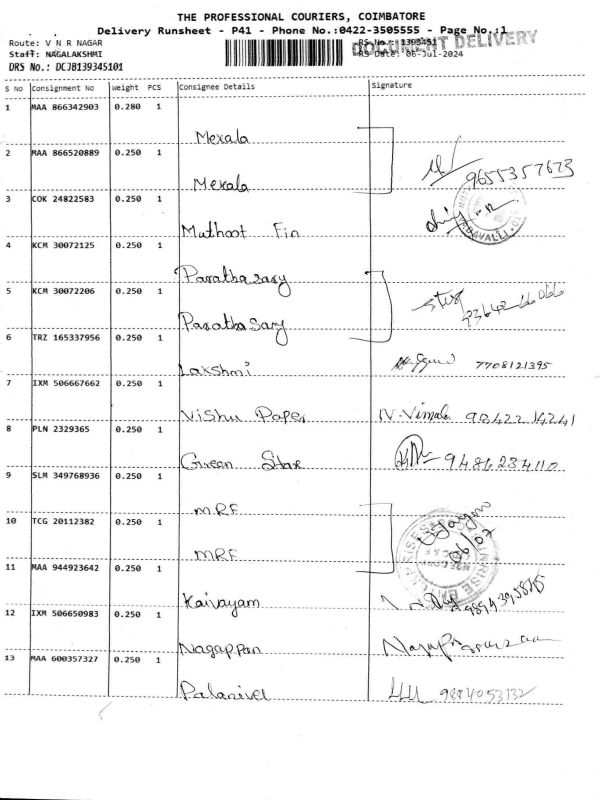 THE PROFESSIONAL COURIERS, COIMBATORE
Delivery Runsheet - P41 - Phone No.:0422-3505555 - Page No.:1
Route: V N R NAGAR
DOCUMENT DELIVERY
Staff: NAGALAKSHMI
RS Date: 06-Jul-2024
DRS No.: DCJB139345101
S No Consignment No Weight PCS Consignee Details Signature
1 MAA 866342903 0.280 1
Mekala
2 MAA 866520889 0.250 1
9655357623
Mekala
3 COK 24822583 0.250 1
Muthoot Fin
4 KCM 30072125 0.250 1
Paratha sary
5 KCM 30072206 0.250 1
Paratha sary
6 TRZ 165337956 0.250 1
Laxshmi 7708121395
7 IXM 506667662 0.250 1
Vishu Paper N. Vimala 98422 14241
8 PLN 2329365 0.250 1
Green Star 9486234110
9 SLM 349768936 0.250 1
MRF
10 TCG 20112382 0.250 1
06/07
MRF
11 MAA 944923642 0.250 1
Kaivayam
12 IXM 506650983 0.250 1
Nagappan
13 MAA 600357327 0.250 1
Palanivel 9884053132